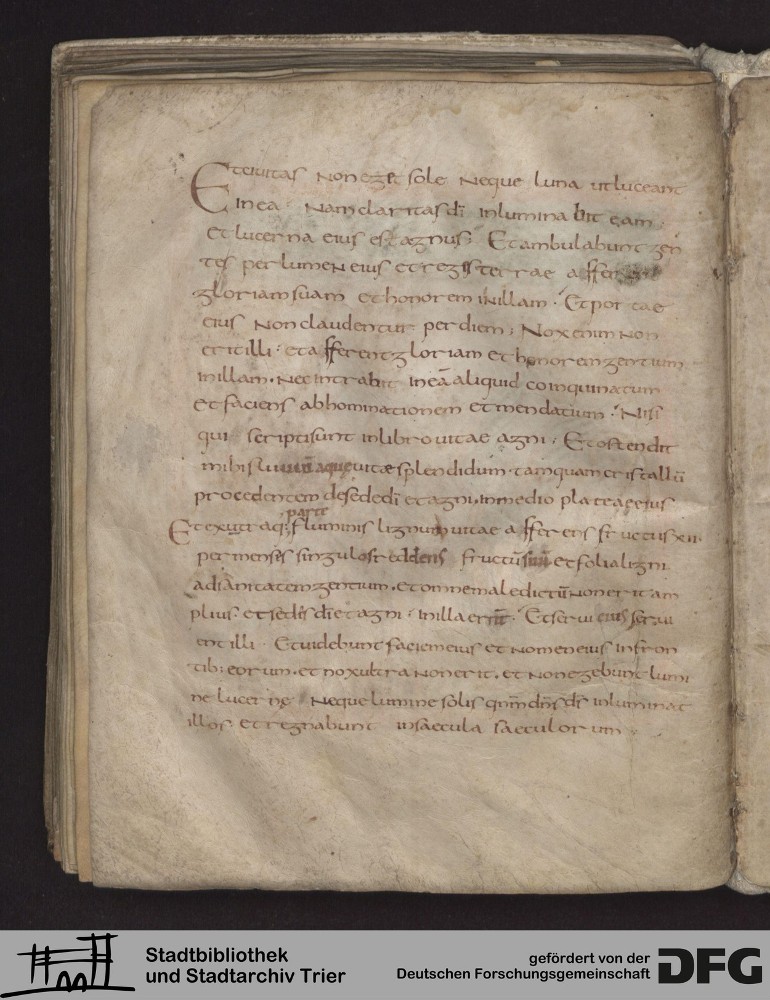 Etciuitas non eget sole neque luna utluceant
in ea · Nam claritas dī inluminabit eam ·
et lucerna eius est agnus · Et ambulabunt gen
tes per lumen eius et regis terrae afferent
gloriam suam et honorem in illam · Et portae
eius non claudentur per diem ; Nox enim non
erit illi · et afferent gloriam et honorem gentium
in illam · nec intrabit in eā aliquid coinquinatum
et faciens abhominationem et mendatium · Nisi
qui scripti sunt in libro vitae agni · Et ostendit
mihi aque vitae splendidum · tamquam cristallū
procedentem de sede dī et agni · in medio plateae eius
parte
Et ex utraq; fluminis lignum vitae afferens fructus xii
per menses singulos reddens fructū suū et folia ligni
ad sanitatem gentium · et omne maledictū non erit am
plius · et sedis dī et agni · in illa erunt · Et serui eius serui
ent illi · Et uidebunt faciem eius et nomen eius in fron
tib; eorum · et nox ultra non erit · et non egebunt lumi
ne lucerne neque lumine solis qnm dns ds inluminat
illos · et regnabunt in saecula saeculorum
Stadtbibliothek
und Stadtarchiv Trier
gefördert von der
Deutschen Forschungsgemeinschaft
DFG